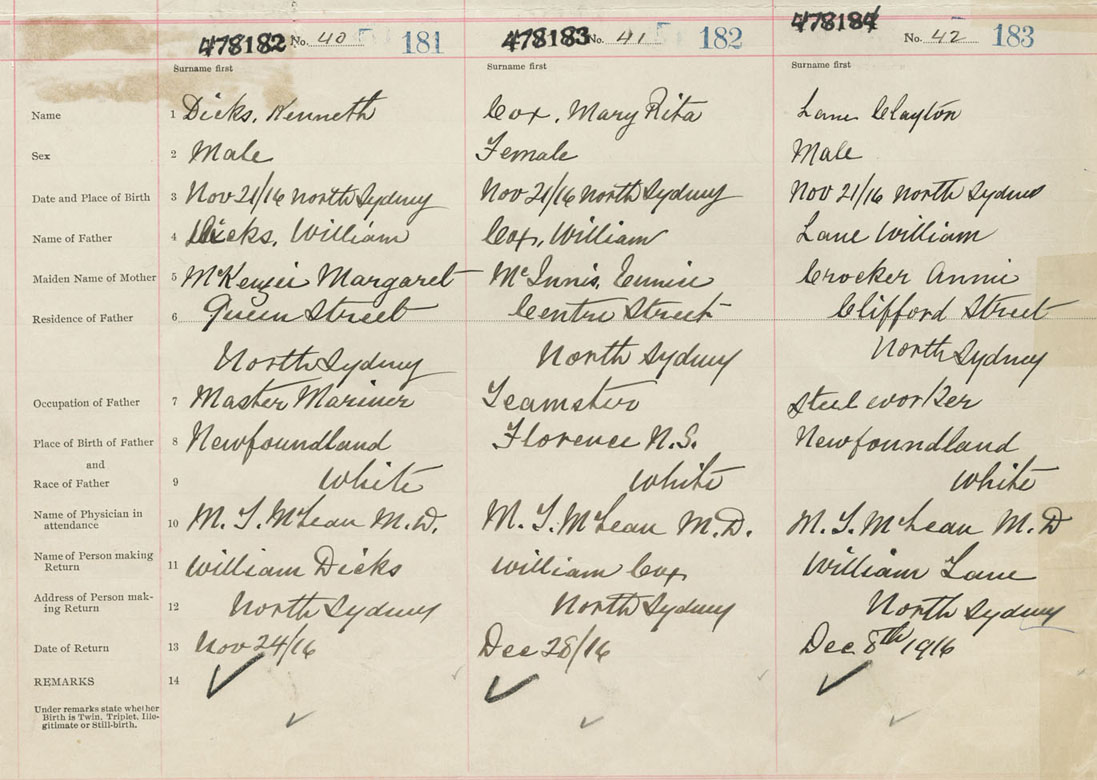 478182 No. 40 181 478183 No. 41 182 478184 No. 42 183
Surname first Surname first Surname first
Name 1 Dicks, Kenneth Cox, Mary Rita Lane Clayton
Sex 2 Male Female Male
Date and Place of Birth 3 Nov 21/16 North Sydney Nov 21/16 North Sydney Nov 21/16 North Sydney
Name of Father 4 Dicks, William Cox, William Lane William
Maiden Name of Mother 5 McKenzie Margaret McInnis, Crocker Annie
Residence of Father 6 Queen Street Centre Street Clifford Street
North Sydney North Sydney North Sydney
Occupation of Father 7 Master Mariner Teamster Steel worker
Place of Birth of Father 8 Newfoundland Florence N.S. Newfoundland
and
Race of Father 9 White White White
Name of Physician in
attendance 10 M. T. McLean M.D. M. T. McLean M.D. M. T. McLean M.D
Name of Person making
Return 11 William Dicks William Cox William Lane
Address of Person mak-
ing Return 12 North Sydney North Sydney North Sydney
Date of Return 13 Nov 24/16 Dec 28/16 Dec 8th 1916
REMARKS 14
Under remarks state whether
Birth is Twin, Triplet, Ille-
gitimate or Still-birth.